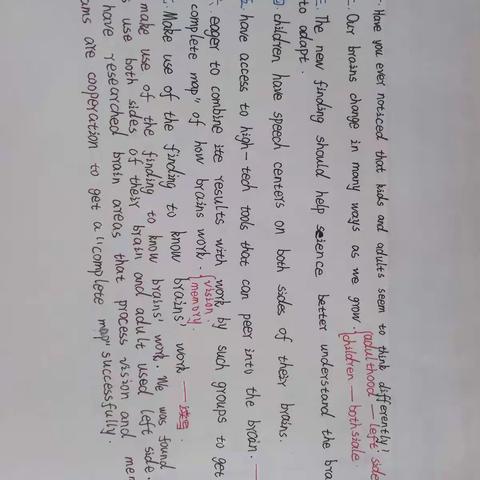 一. Have you ever noticed that kids and adults seem to think differently!
二. Our brains change in many ways as we grow. {adulthood — left side
children — both siale.
三. The new finding should help science better understand the bra
to adapt.
children have speed centers on both sides of their brains.
have access to high-tech tools that can peer into the brain. —
eager to combine ite results with work by such groups to get
complete map" of how brains work. {vision.
memory.
Make use of the finding to know brains' work —
make use of the finding to know brains' work. We was found
use both sides of their brain and adult used left side.
have researched brain areas that process vision and mem
ams are cooperation to get a "complete map" successfully.